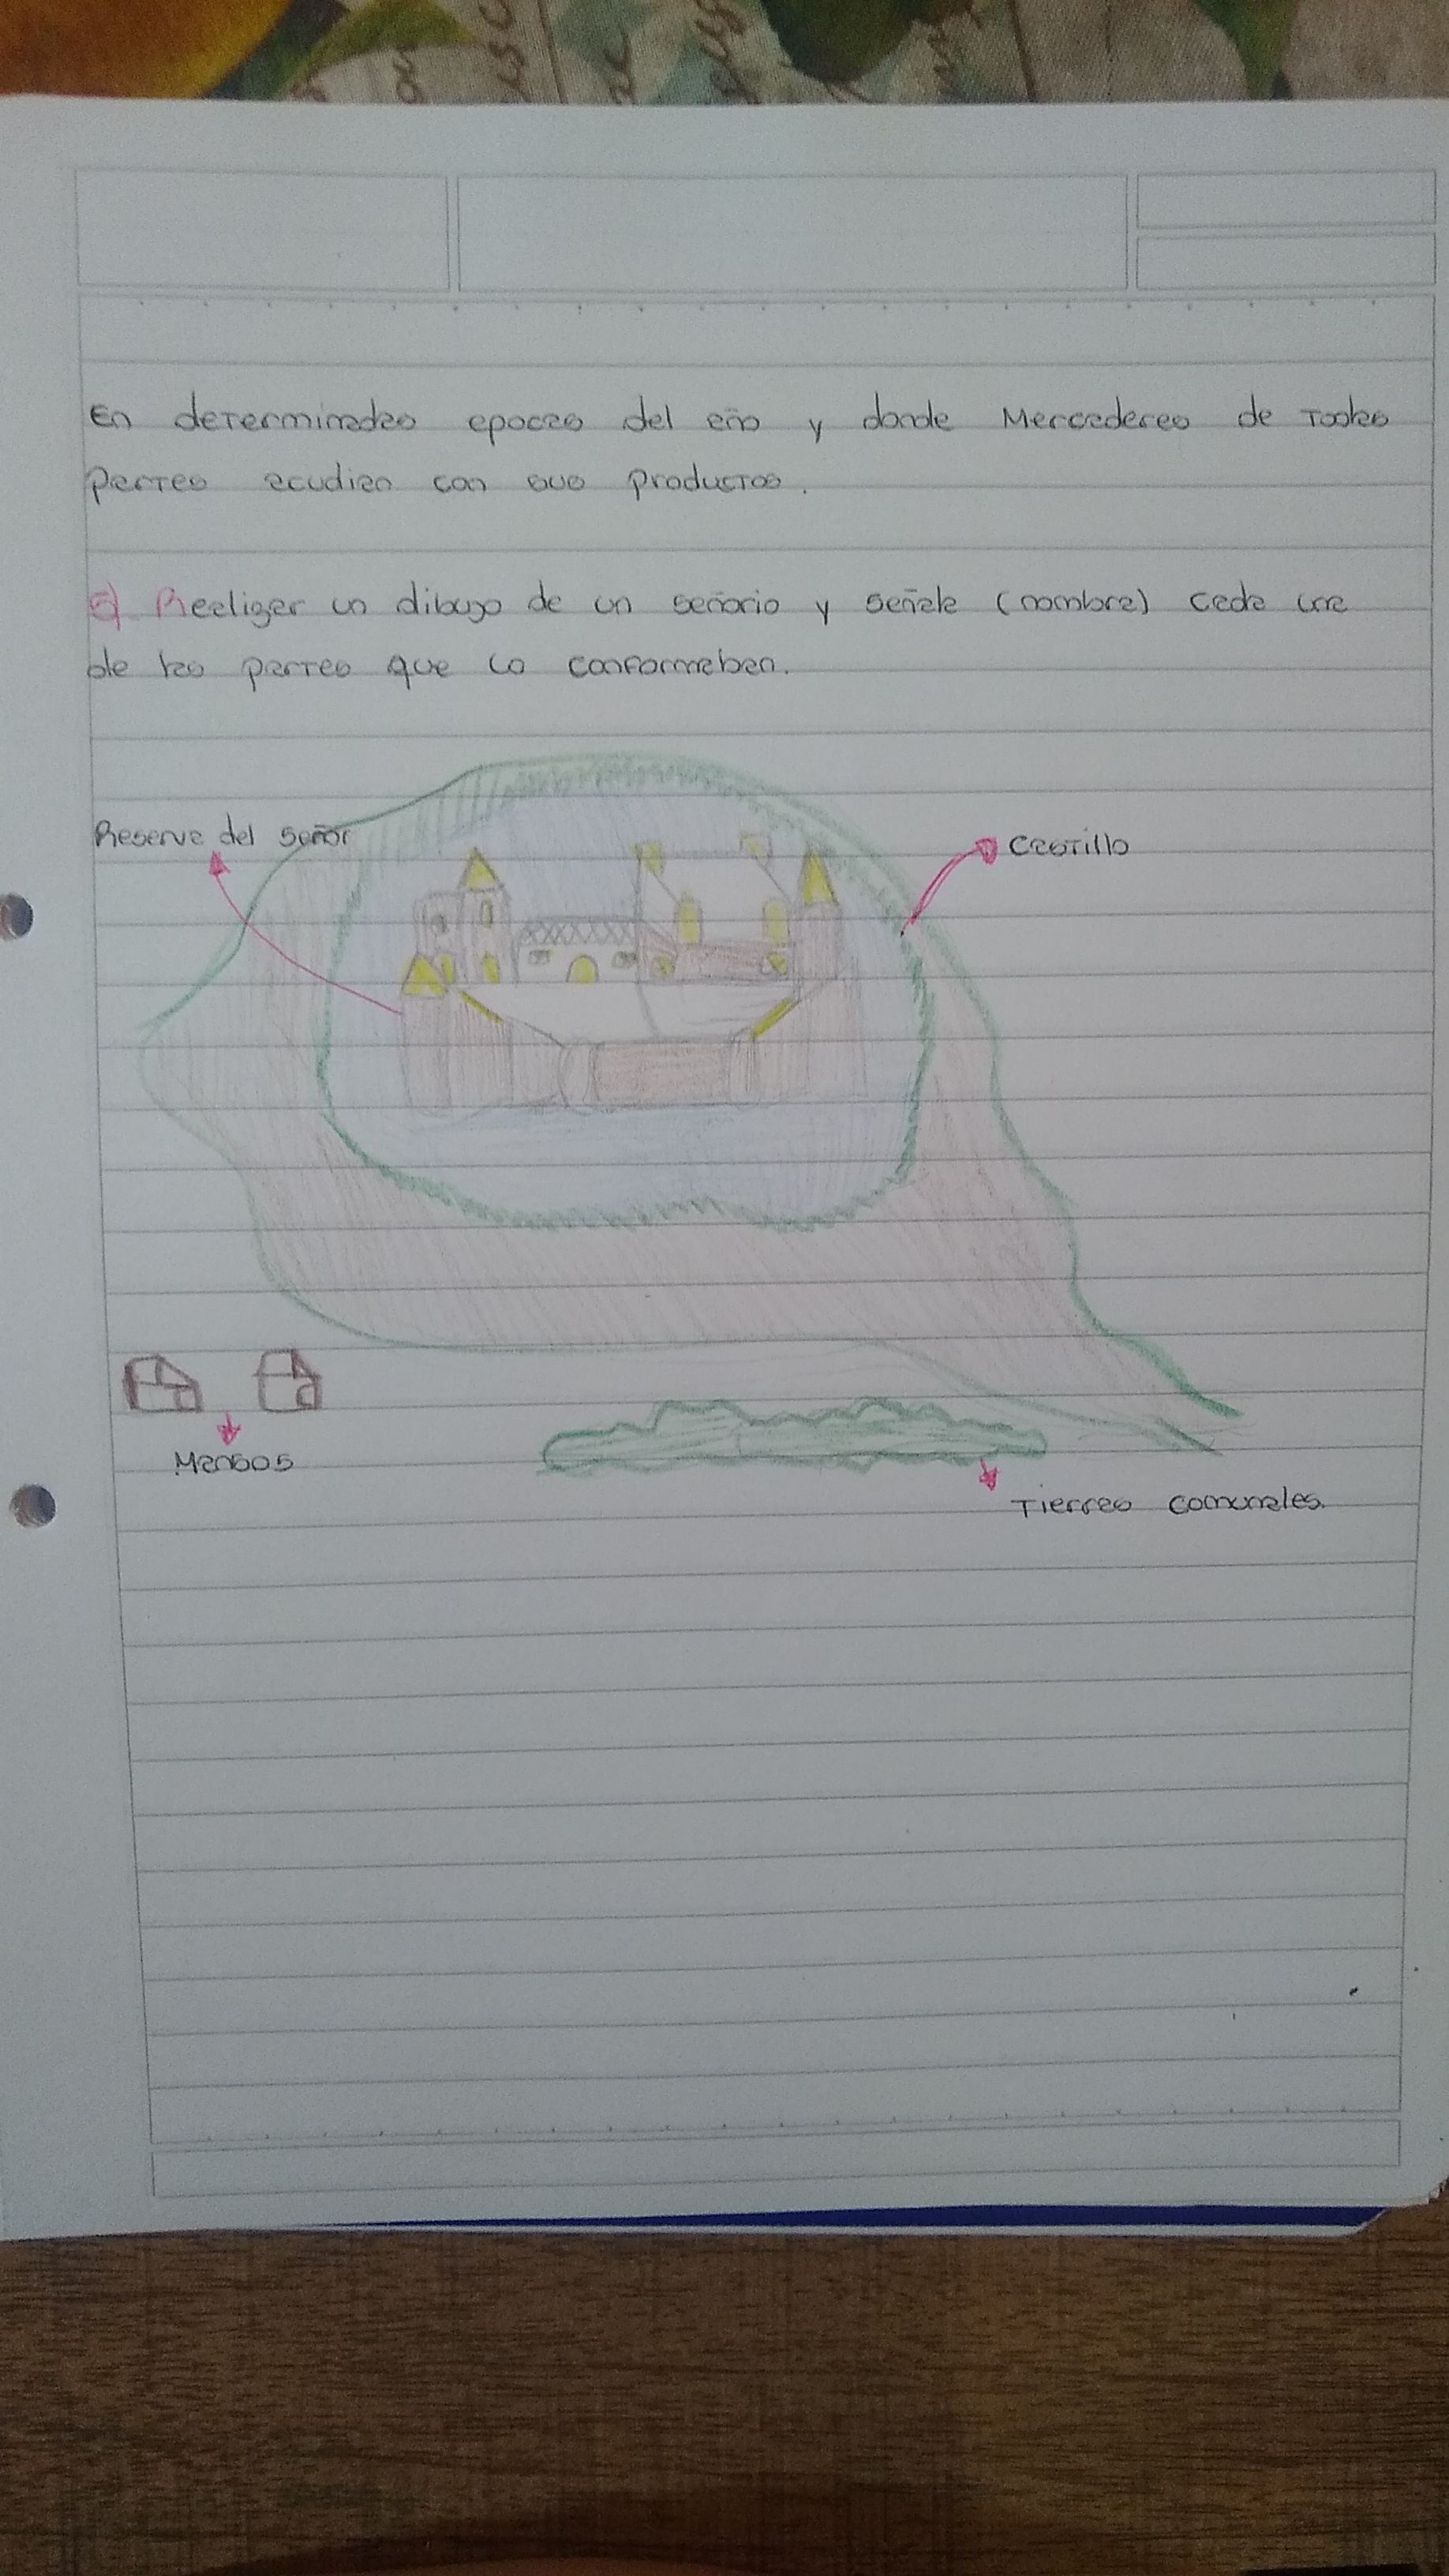 En determinadas epocas del año y donde Mercaderes de Todas
partes acudian con sus productos.
5) Realizar un dibujo de un señorio y señala (nombra) cada una
de las partes que lo conformaban.
Reserva del señor
Castillo
Mansos
Tierras comunales.